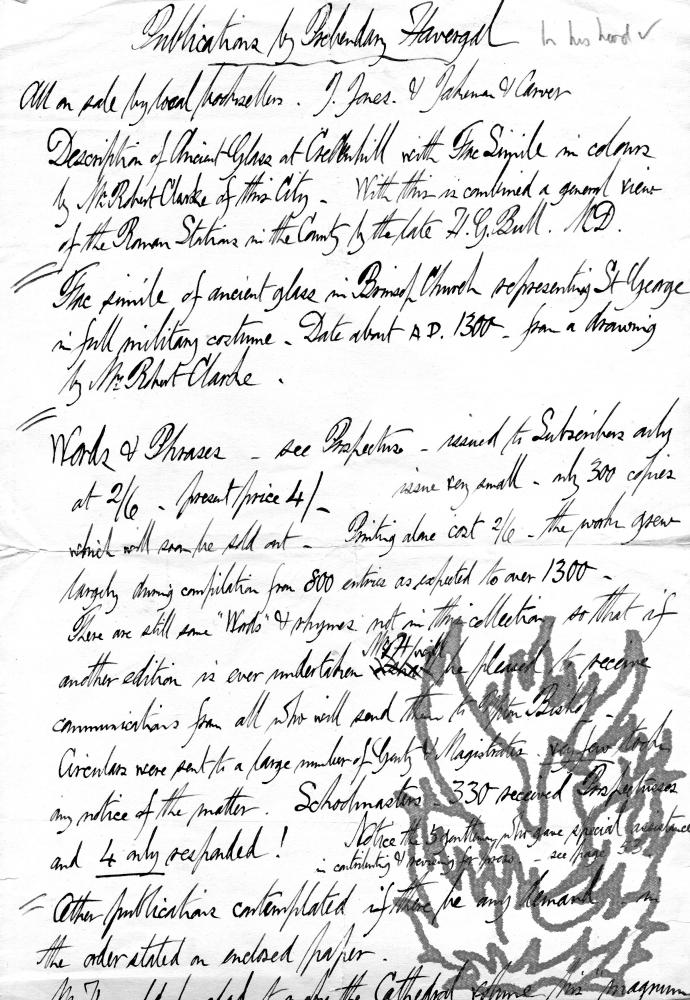 Publications by Prebendary Havergal
In his hand ✓
All on sale by local booksellers. J. Jones. & Jakeman & Carver
Description of Ancient Glass at Credenhill with Fac Simile in colours
by Mr Robert Clarke of this City - With this is combined a general view
of the Roman Stations in the County by the late H. G. Bull. M.D.
Fac simile of ancient glass in Brinsop Church representing St George
in full military costume - Date about A.D. 1300 - from a drawing
by Mr Robert Clarke.
Words & Phrases - see Prospectus - issued to Subscribers only
at 2/6 - present price 4/- issue very small - only 300 copies
which will soon be sold out - Printing alone cost 2/6 - the work grew
largely during compilation from 800 entries as expected to over 1300 -
There are still some "Words" & rhymes not in this collection so that if
another edition is ever undertaken Mr H will be pleased to receive
communications from all who will send them to Upton Bishop -
Circulars were sent to a large number of Gentry & Magistrates - very few took
any notice of the matter. Schoolmasters - 330 received Prospectuses
and 4 only responded!
Notice the 5 gentlemen who gave special assistance
in contributing & revising for press - see page
Other publications contemplated if there be any demand - in
the order stated on enclosed paper.
to make the Cathedral volume his "magnum